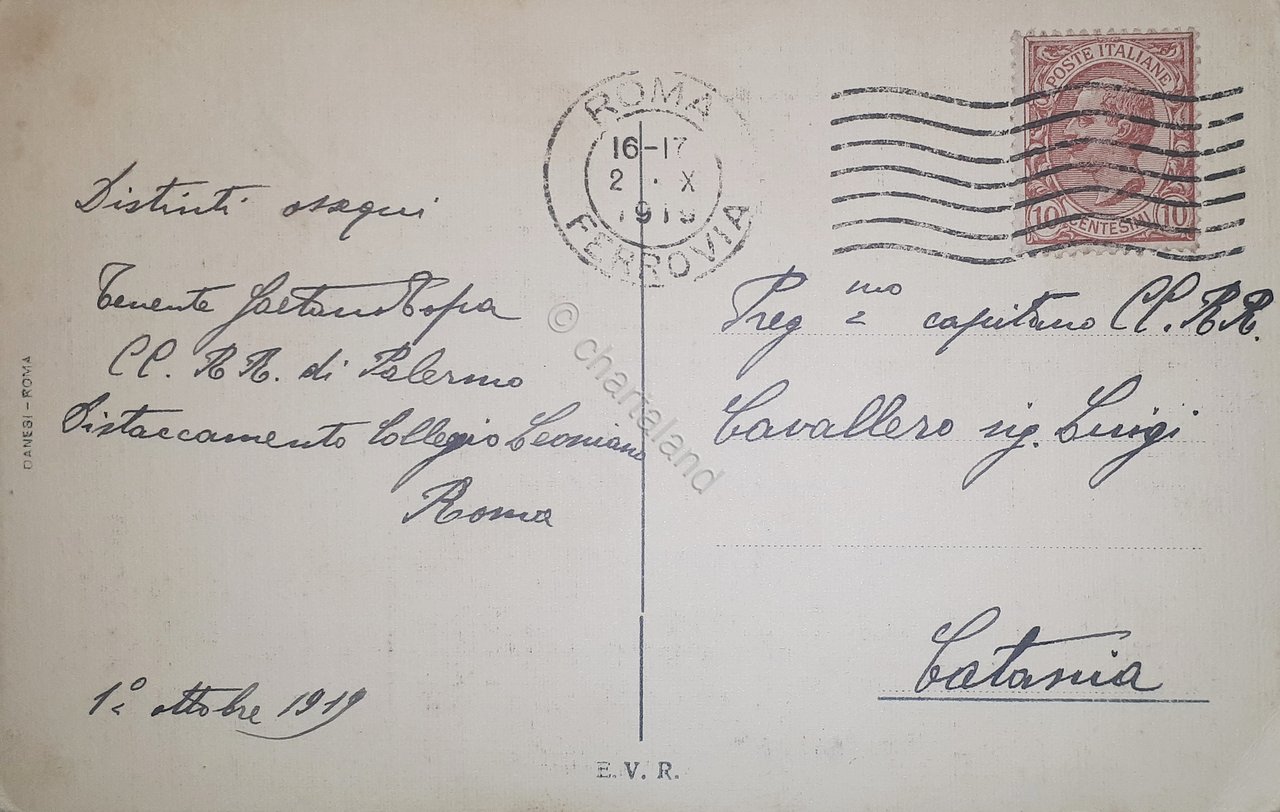 POSTE ITALIANE
10 CENTESIMI 10
ROMA
16-17
2 · X
1919
FERROVIA
Distinti ossequi
Tenente Gaetano
CC. RR. di Palermo
Distaccamento Collegio Leoniano
Roma
1º ottobre 1919
Preg mo capitano CC. RR.
Cavallero sig. Luigi
Catania
DANESI - ROMA
E. V. R.
© chartaland